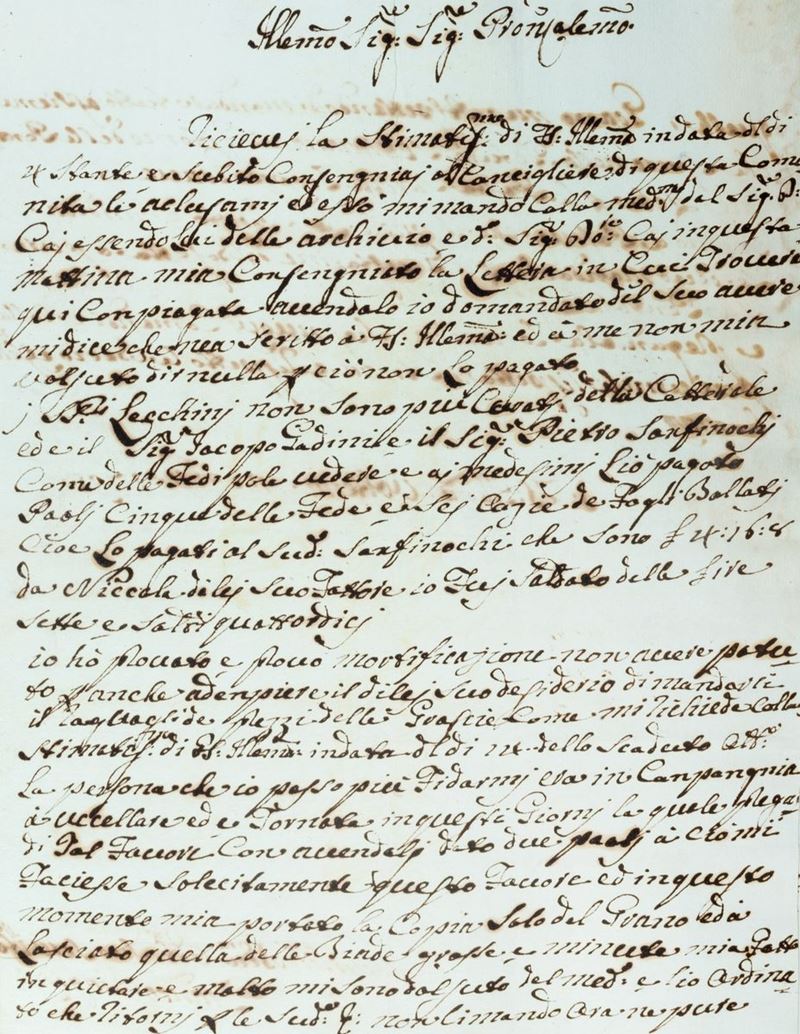 Illemo Sig:re Sig:re Pron
Riceuej la Stimatiss:ma di VS: Illema in data dl di
4 Stante e Subito Consengniaj al Cancigliere di questa Comu
nita le aclusami ed esso mi mando Colla med:ma del Sig:
Caj essendo Lui delle archiuio e d: Sig: Caj in questa
mattina mia Consengniato la Lettera in Cuci Trouera
qui Conpiagata auendalo io domandato del Suo auere
mi dice che nea Scritto à VS: Illema: ed à me non mia
volsuto dir nulla p ciò non Lo pagato
j Lecchinj non Sono più Curatj della Catterale
ed e il Sig:re Jacopo Gadini e il Sig:re Pietro Sanfinochj
Come delle Fedi pole uedere e aj medesimj Liò pagato
Paolj Cinque delle Fede e Sej Cazie de Fogli Bollatj
Cioe Lo pagati al Sud: Sanfinochi che Sono £ 4:16:8
da Niccola di lej Suo Fattore io Fuj Saldato delle Lire
Sette e Saldi quattordicj
io hò prouato e prouo mortificazione non auere potu
to p anche adenpiere il di lej Suo desiderio di mandarli
il Raguaglide Prezi delle Grascie Come mi Richiede Colla
Stimatiss:ma di VS: Illema: in data dl di 24 dello Scaduto
La persona che io posso più Fidarmj era in Canpangnia
à uccellare ed e Tornata in questi Giornj la quale Pregai
di Tal Fauore Con auendalj dato due paolj à Ciò mi
Faciesse Solecitamente questo Fauore ed in questo
momento mia portato la Copia Solo del Grano ed à
Lasciato quella delle Biade grosse e minute mia Fatto
inquietare e molto mi Sono dolsuto del med: e liò Ordina
to che Ritornj p le Sud:e non li mando Ora ne pure